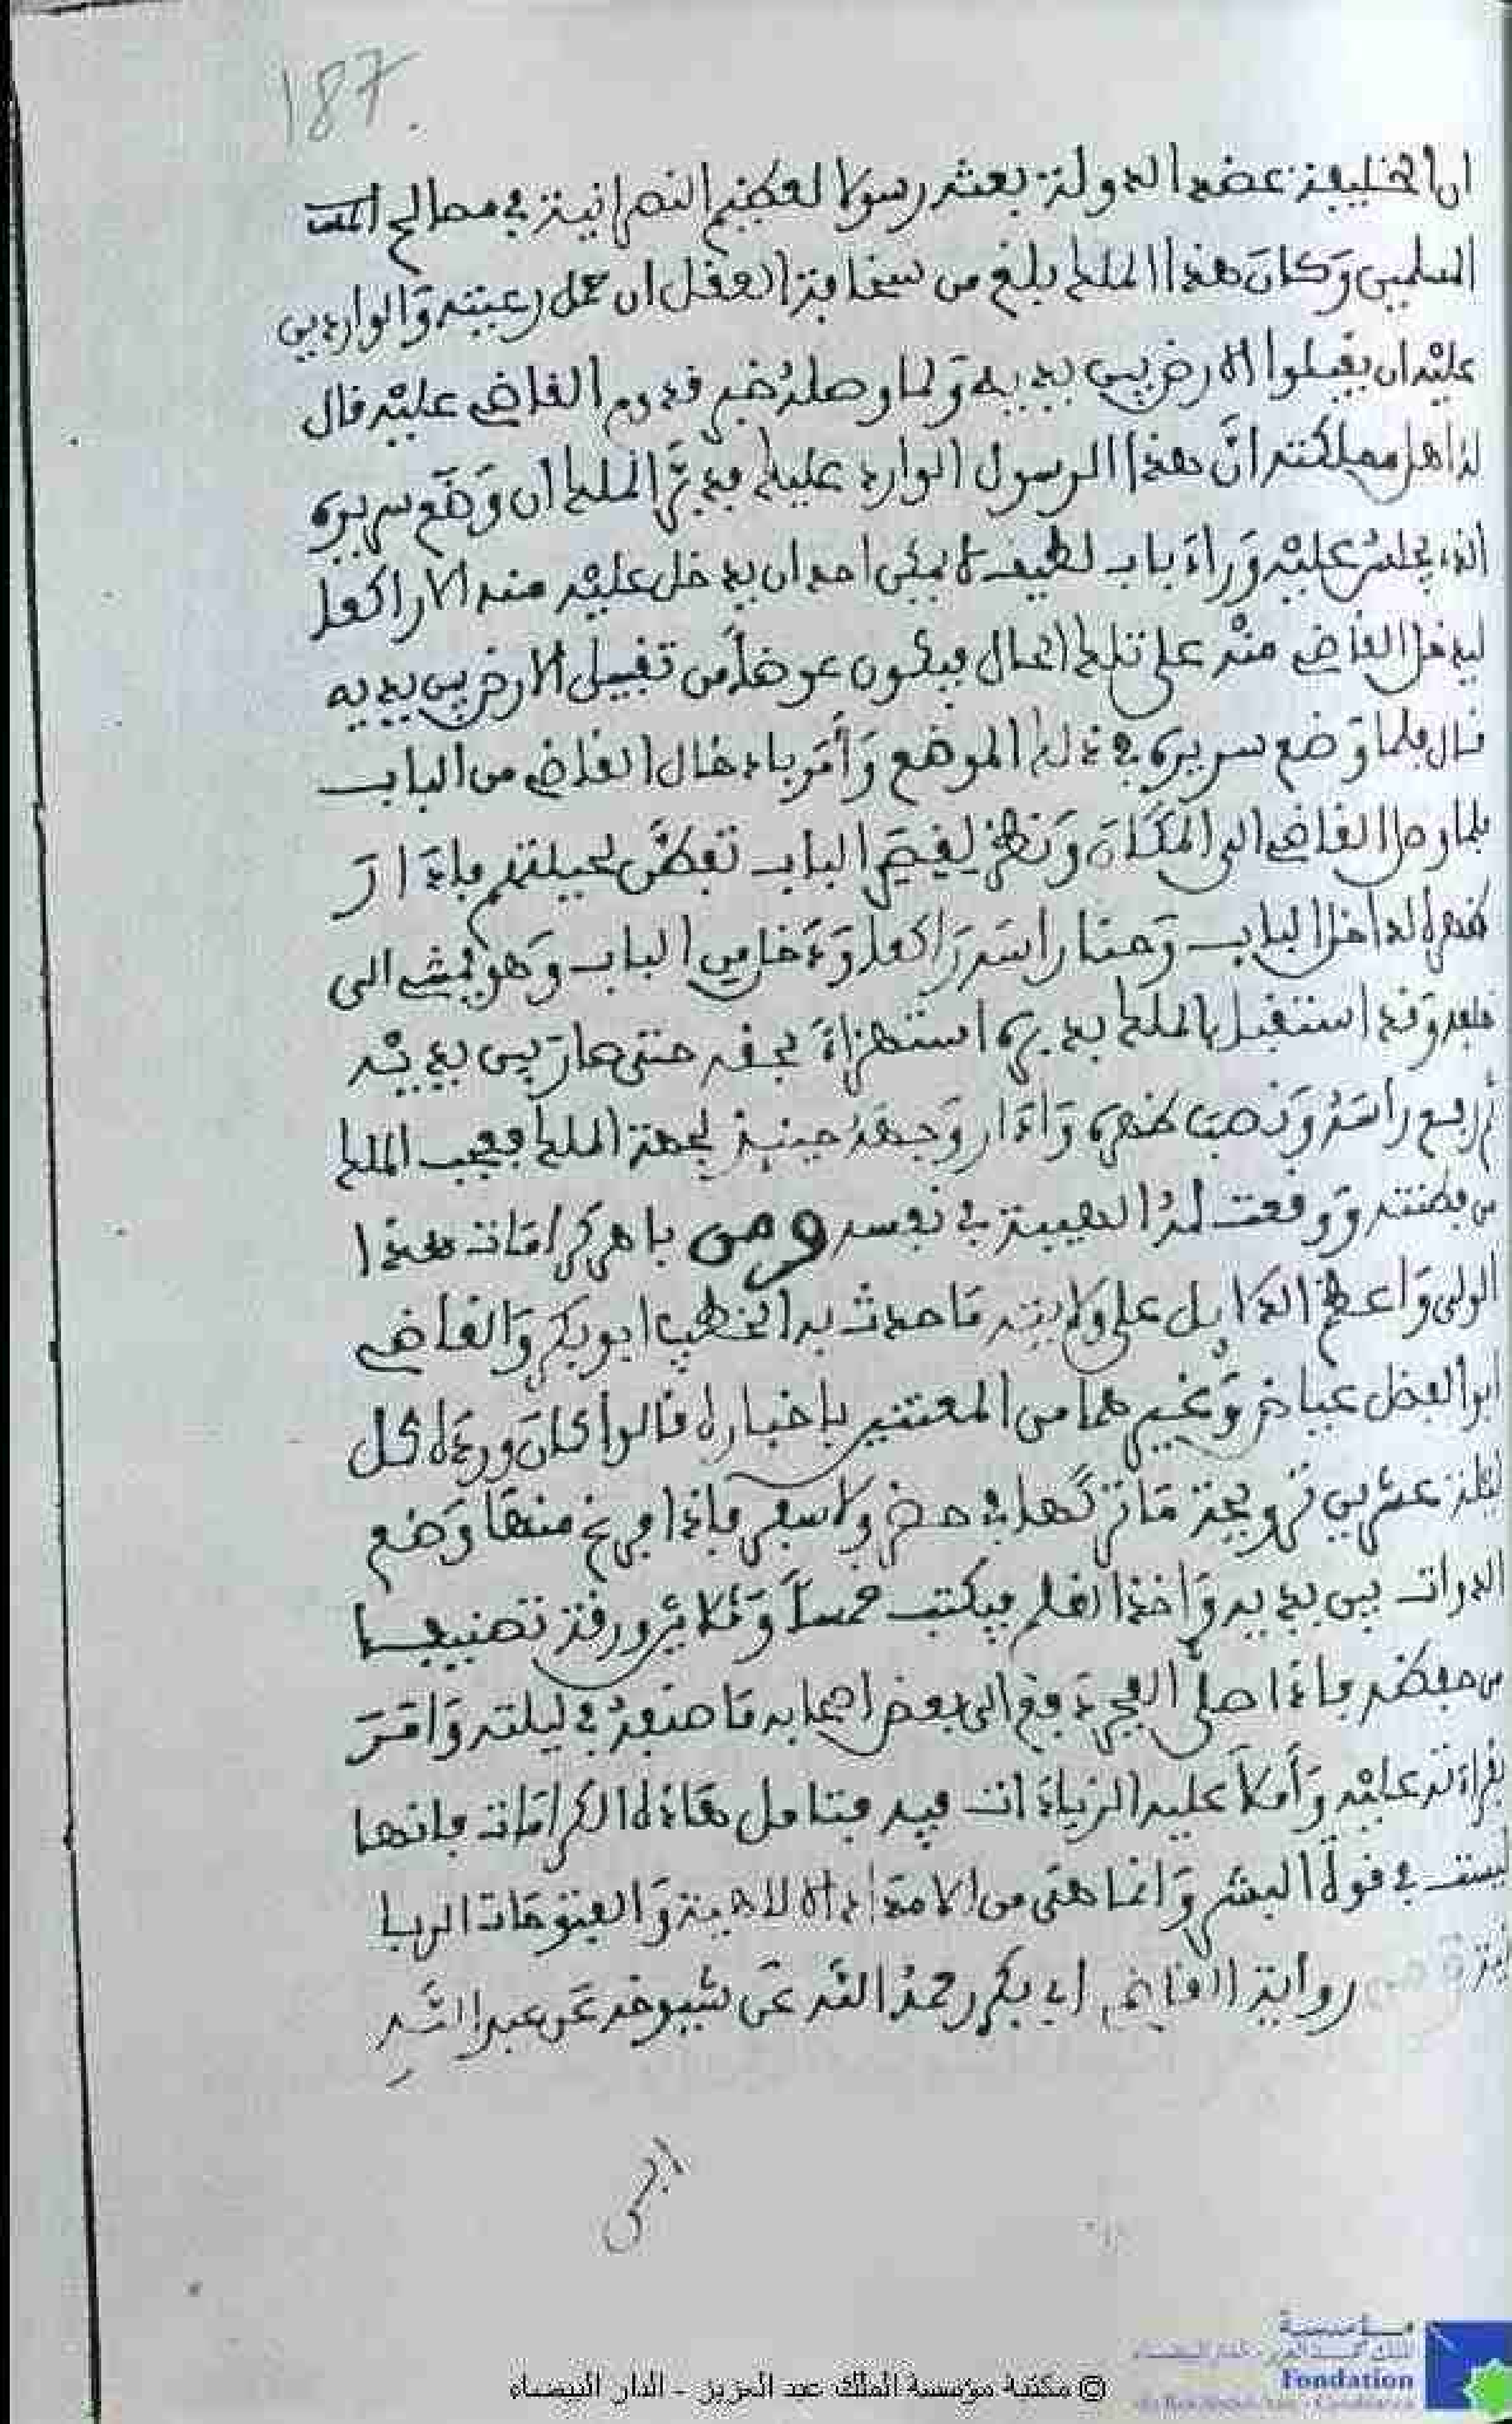 187.
ان الخليفة عضد الدولة بعثه رسولا لعظيم النصرانية في مصالح
المسلمين وَكانَ هذا الملك بلغ من سخافة العقل ان حمل رعيته وَالواردين
عليْه ان يقبلوا الارض بين يديه وَلما وصلهُ خبر قدوم القاضي عليْه قال
لهُ اهل مملكته انَّ هذا الرسول الوارد عليك فدبَّر الملك ان وَضَع سريره
الذي يجلسُ عليْه وَراءَ باب لطيف لا يمكن احد ان يدخل عليْه منه الا راكعا
ليدخل القاضي منْه على تلك الحال فيكون عوضاً من تقبيل الارض بين يديه
قال فلما وَضع سريره في ذلك الموضع وَأمَر بادخال القاضي من الباب
فلما وصل القاضي الى المكَان وَنظر لقصر الباب تفطَّن لحيلتهم فادَارَ
ظهره لداخل الباب وَحنا راسَه رَاكعا وَدَخل من الباب وَهو يمشي الى
خلفه وَقد استقبل الملك بدبره استهزاءً بحقه حتى صارَ بين يديْه
ثم رفع راسَهُ وَنصبَ ظهره وَادَار وَجهَهُ حينيذ لجهة الملك فعجب الملك
من فطنته وَوقعت لهُ الهيبة في نفسه ومن باهر كرامات هذا
الولي وَاعظم الدلايل على ولايته مَا حدث به الخطيب ابو بكر وَالقاضي
ابو الفضل عياض وَغيرهما من المعتنين باخباره قالوا كانَ وردُه كل
ليلة عشرين ترويحة مَا تركها في حضر ولا سفر فاذا فرغ منهَا وَضع
الدوات بين يديه وَاخذ القلم فيكتب خمساً وَثلاثين ورقة تصنيفا
من حفظه فاذا صلى الفجر دَفع الى بعض اصحابه مَا صنفهُ في ليلته وَامَرَ
بقراءته عليْه وَأملأ عليه الزياداتِ فيه فتامل هَاذه الكرامَات فانها
ليست في قوة البشر وَانما هيَ من الامدَادات الالاهية وَالفتوحَات الربا
نية
رواية القاضي ابي بكر رحمهُ اللَّه عَن شيوخه عَن عبد اللَّهِ
ابن
© مكتبة مؤسسة الملك عبد العزيز - الدار البيضاء
مؤسسة
الملك عبد العزيز - الدار البيضاء
Fondation